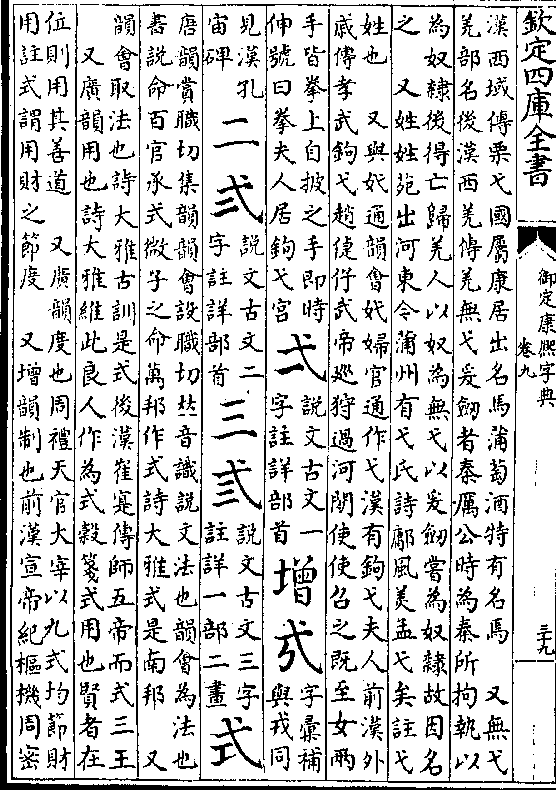 欽定四庫全書
御定康熙字典
卷九
三十九
漢西域傳栗弋國屬康居出名馬蒲萄酒特有名馬 又無弋
羌部名後漢西羌傳羌無弋爰劒者秦厲公時為秦所拘執以
為奴隸後得亡歸羌人以奴為無弋以爰劒嘗為奴隸故因名
之 又姓姓苑出河東今蒲州有弋氏詩鄘風美孟弋矣註弋
姓也 又與妷通韻會妷婦官通作弋漢有鉤弋夫人前漢外
戚傳孝武鉤弋趙倢伃武帝廵狩過河閒使使召之既至女兩
手皆拳上自披之手即時
伸號曰拳夫人居鉤弋宮
弌
說文古文一
字註詳部首
增
字彙補
與戎同
見漢孔
宙碑
二
弍
說文古文二
字註詳部首
三
弎
說文古文三字
註詳一部二畫
式
唐韻賞職切集韻韻會設職切𠀤音識說文法也韻會為法也
書說命百官承式微子之命萬邦作式詩大雅式是南邦 又
韻會取法也詩大雅古訓是式後漢崔寔傳師五帝而式三王
又廣韻用也詩大雅維此良人作為式穀箋式用也賢者在
位則用其善道 又廣韻度也周禮天官大宰以九式均節財
用註式謂用財之節度 又增韻制也前漢宣帝紀樞機周密